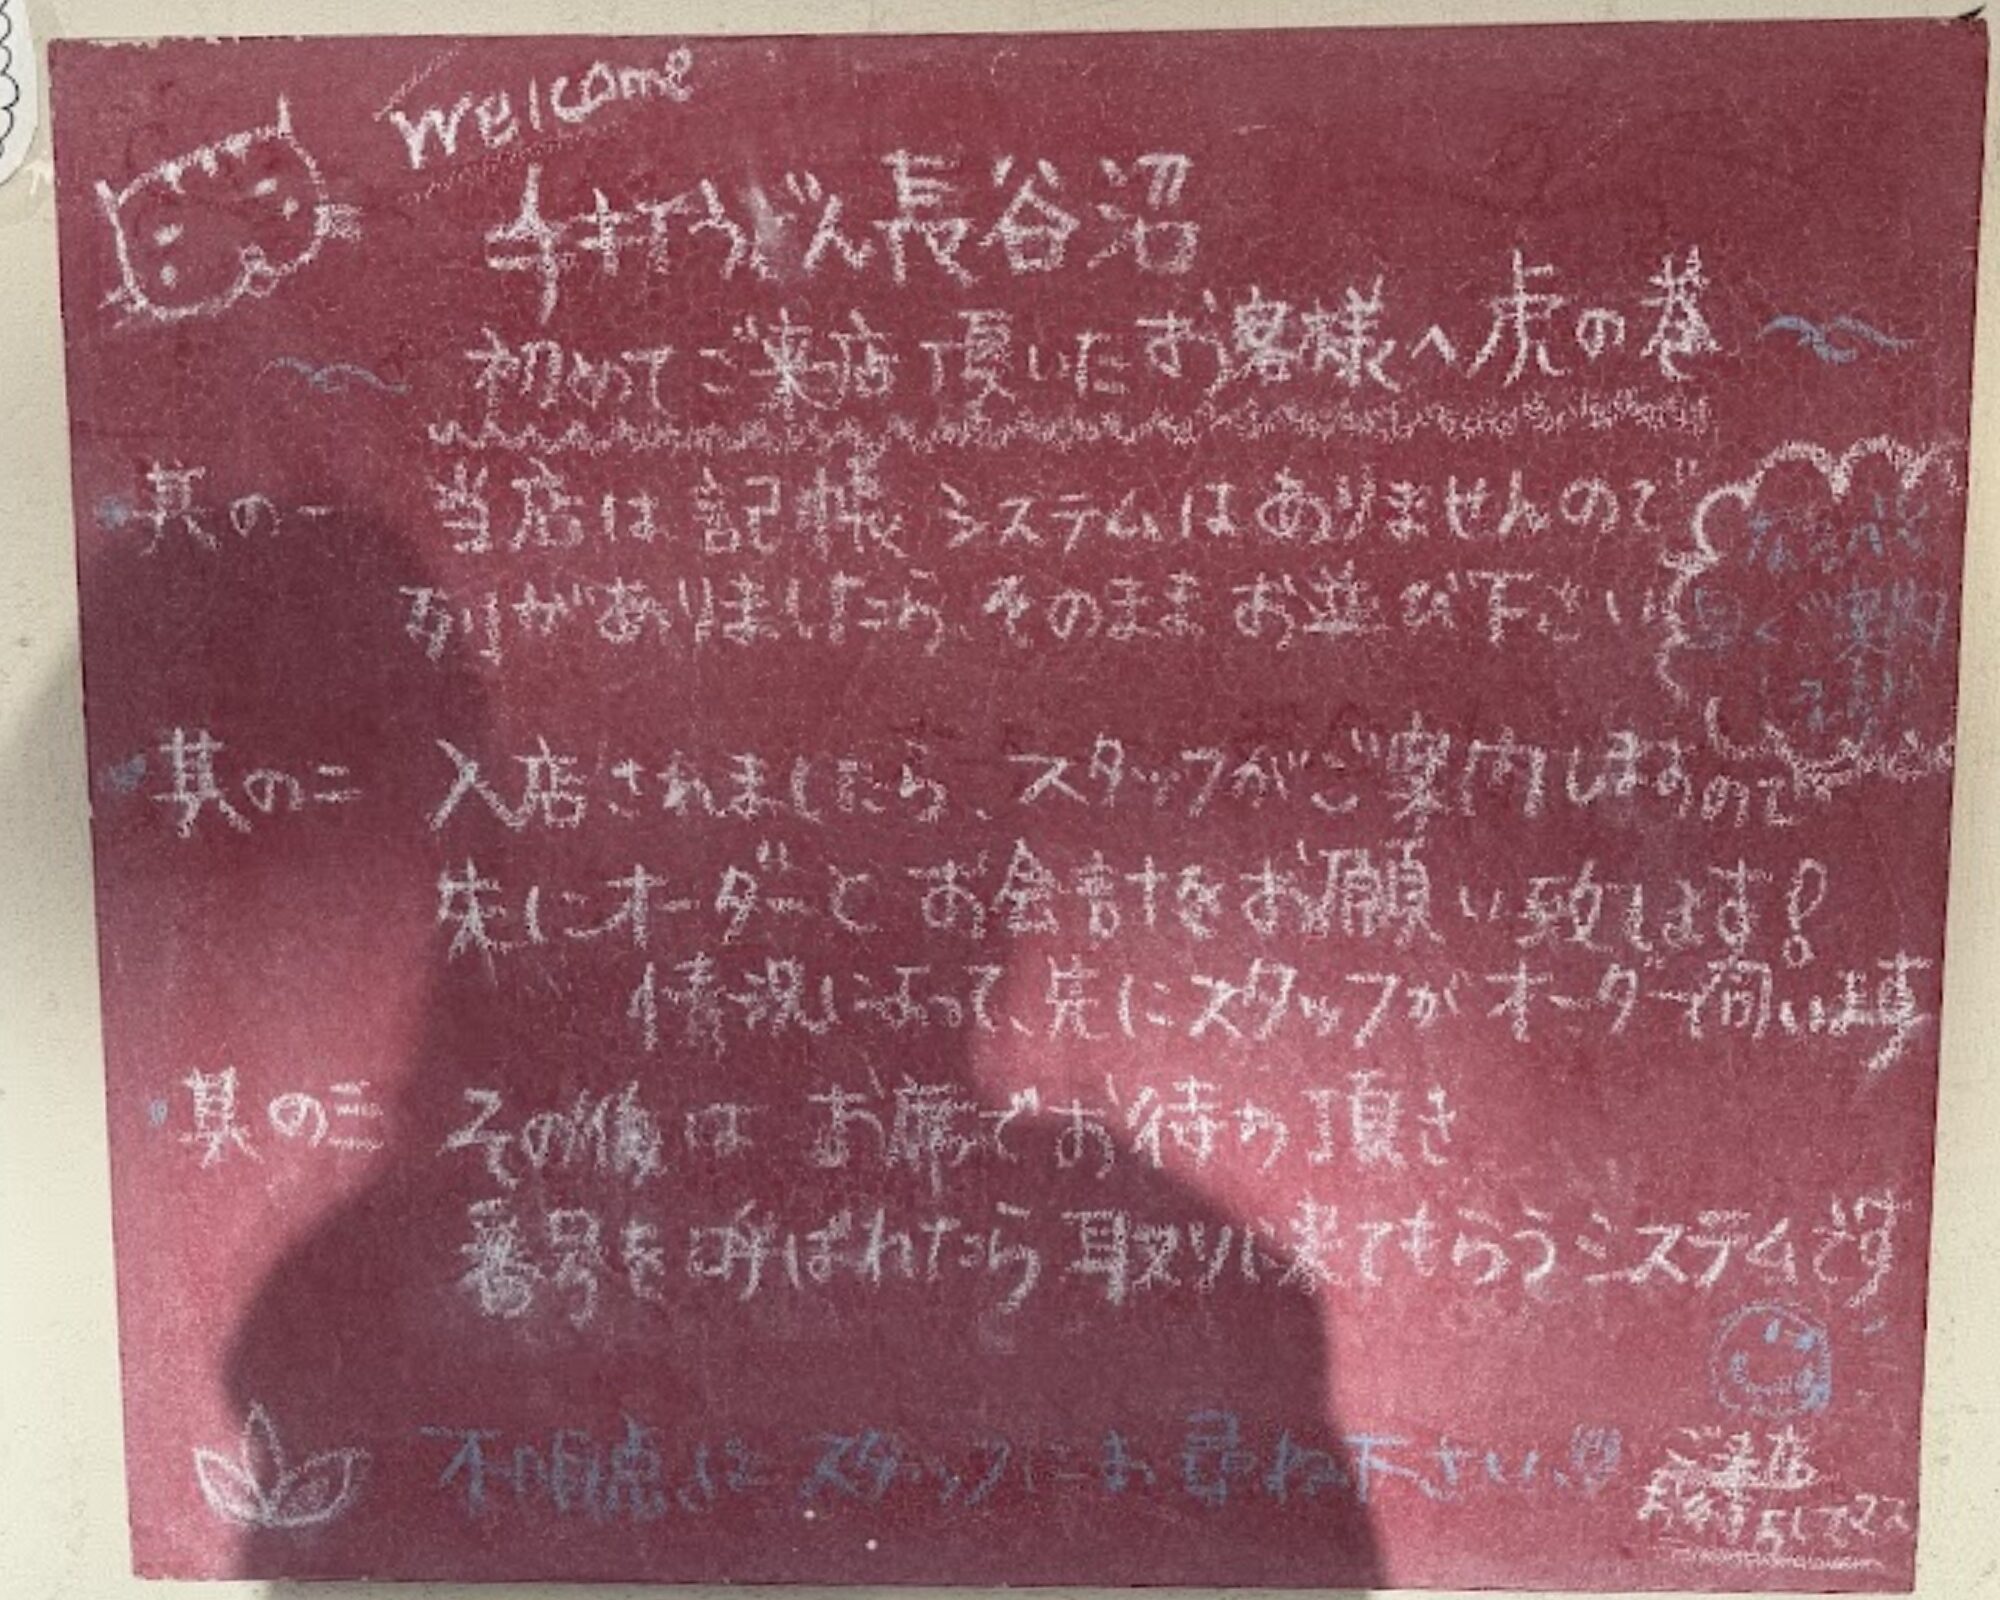 welcome
手打うどん長谷沼
初めてご来店頂いたお客様へ虎の巻
其の一 当店は記帳システムはありませんので
列がありましたら、そのままお並び下さい
なるべく
早くご案内
します
其の二 入店されましたら、スタッフがご案内しますので
先にオーダーとお会計をお願い致します!
情況によって、先にスタッフがオーダー伺います
其の三 その後はお席でお待ち頂き
番号を呼ばれたら取りに来てもらうシステムです
不明点はスタッフにお尋ね下さい!!
ご来店
お待ちしてマス